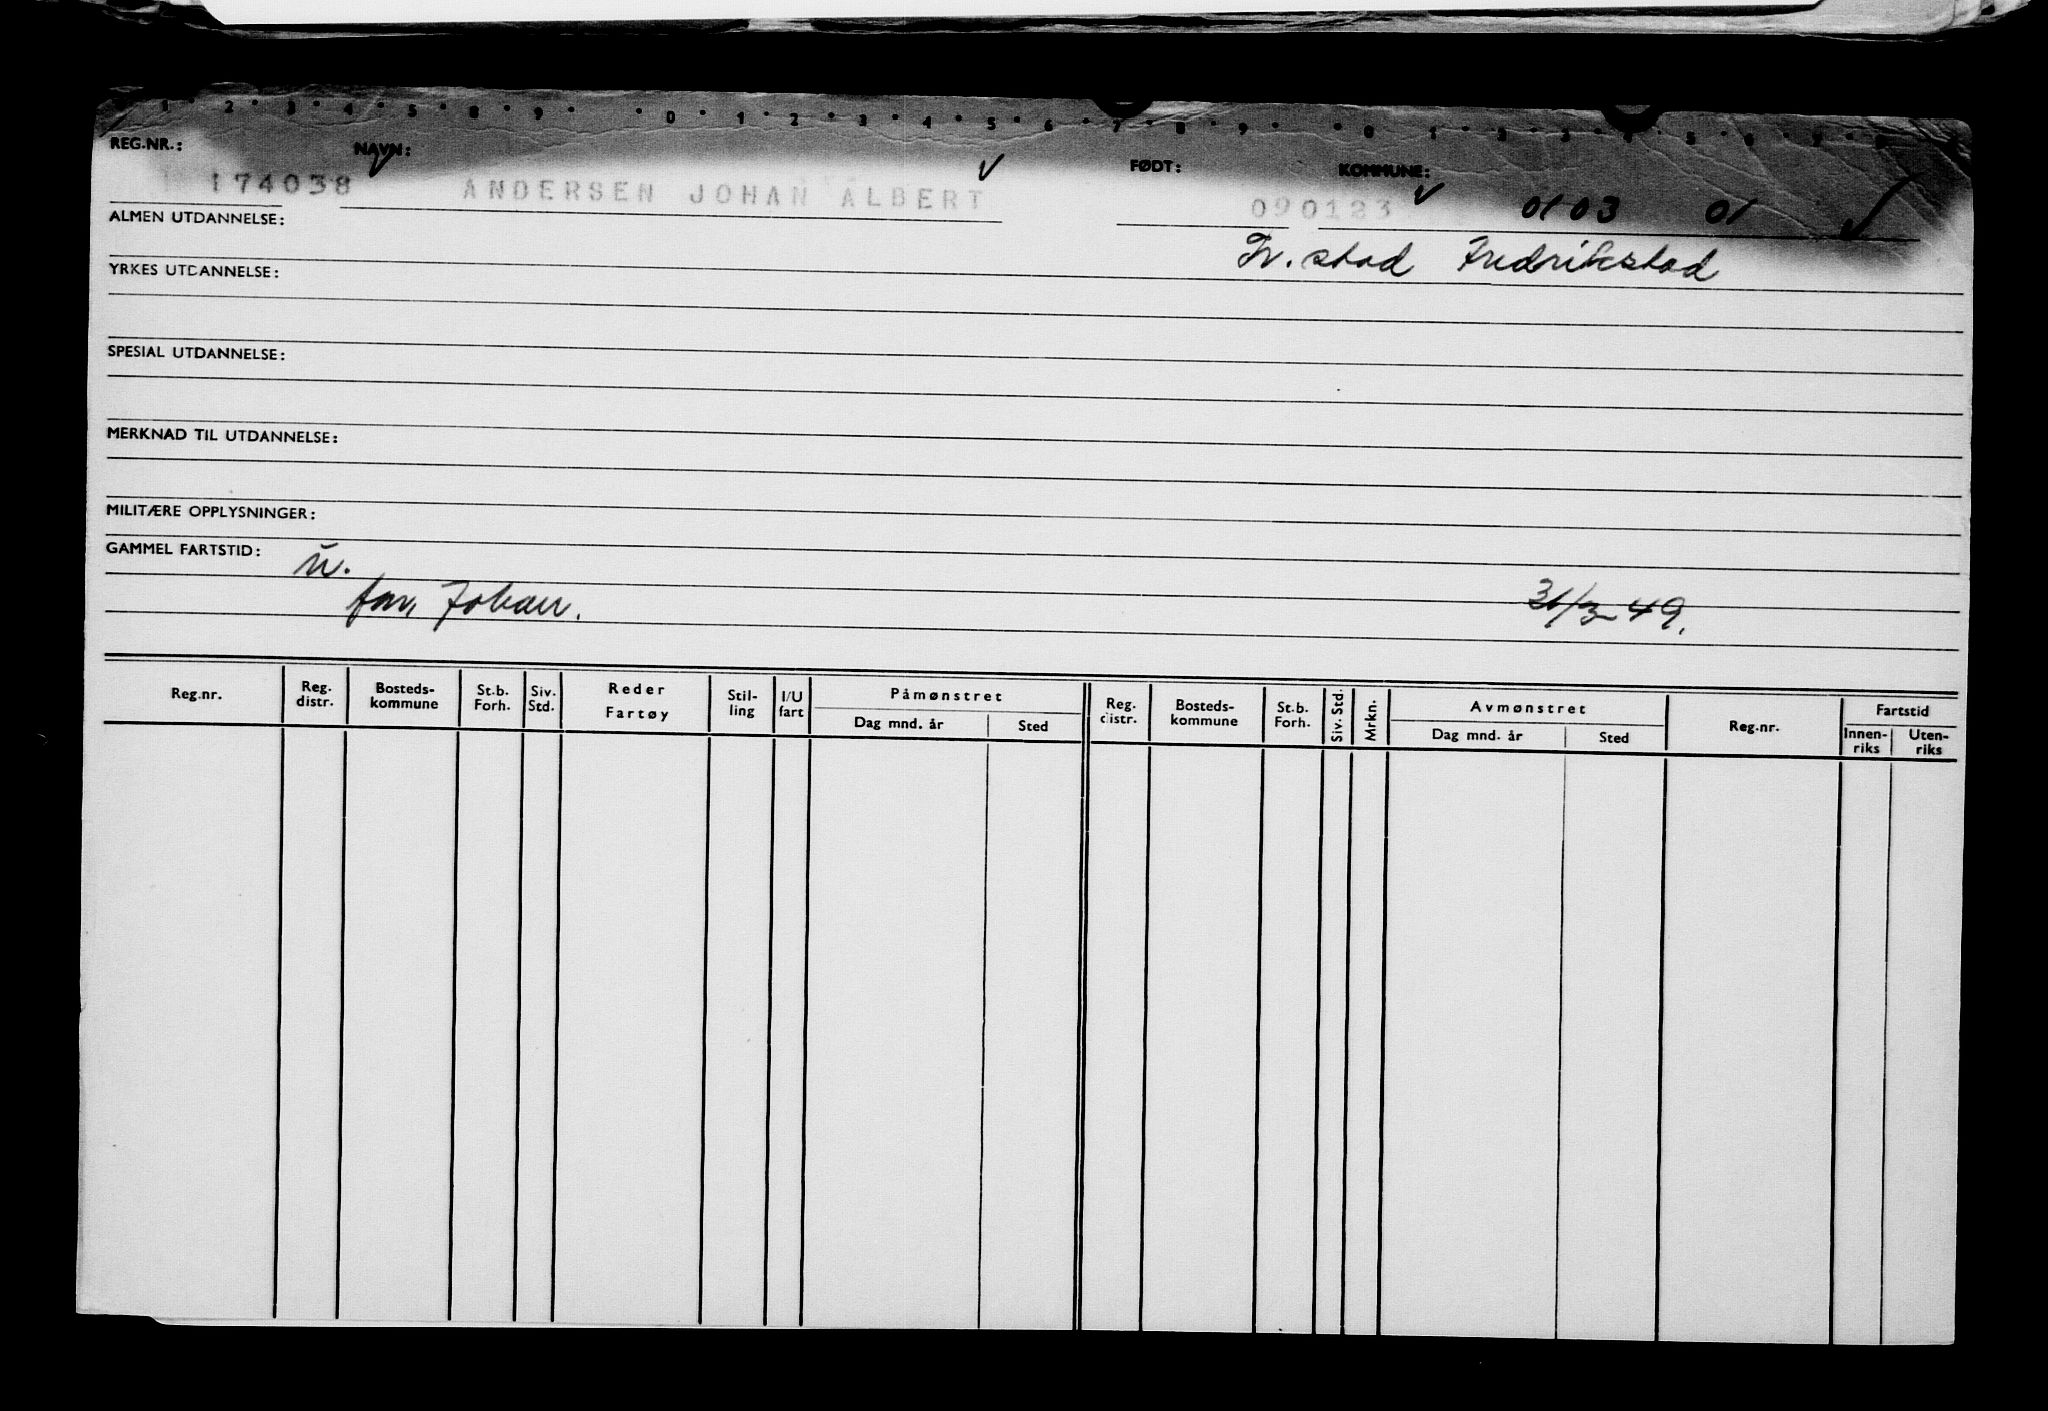 1 2 3 4 5 8 9 0 1 2 3 4 5 6 7 8 9 0 1 2 3 4 5 6 7 8
REG.NR.: NAVN: FØDT: KOMMUNE:
174038 ANDERSEN JOHAN ALBERT 090123 0103 01
ALMEN UTDANNELSE:
Fr. stad Fredrikstad
YRKES UTDANNELSE:
SPESIAL UTDANNELSE:
MERKNAD TIL UTDANNELSE:
MILITÆRE OPPLYSNINGER:
GAMMEL FARTSTID:
u.
far, Johan. 31/3-49.
Reg.nr. Reg. distr. Bosteds- kommune St.b. Forh. Siv. Std. Reder Fartøy Stil- ling I/U fart Påmønstret Dag mnd. år Sted Reg. distr. Bosteds- kommune St.b. Forh. Siv. Std. Mrkn. Avmønstret Dag mnd. år Sted Reg.nr. Fartstid Innen- riks Uten- riks